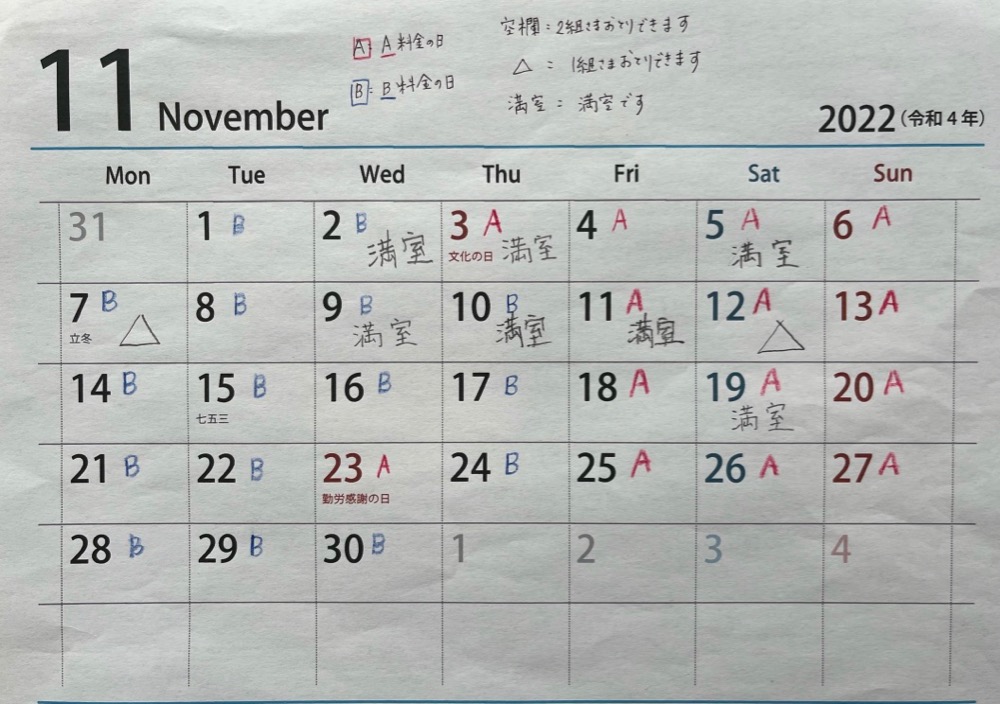 11 November
A: A料金の日
B: B料金の日
空欄:2組さまおとりできます
△ : 1組さまおとりできます
満室 : 満室です
2022(令和4年)
Mon Tue Wed Thu Fri Sat Sun
31 1 B 2 B 満室 3 A 文化の日 満室 4 A 5 A 満室 6 A
7 B 立冬 △ 8 B 9 B 満室 10 B 満室 11 A 満室 12 A △ 13 A
14 B 15 B 七五三 16 B 17 B 18 A 19 A 満室 20 A
21 B 22 B 23 A 勤労感謝の日 24 B 25 A 26 A 27 A
28 B 29 B 30 B 1 2 3 4